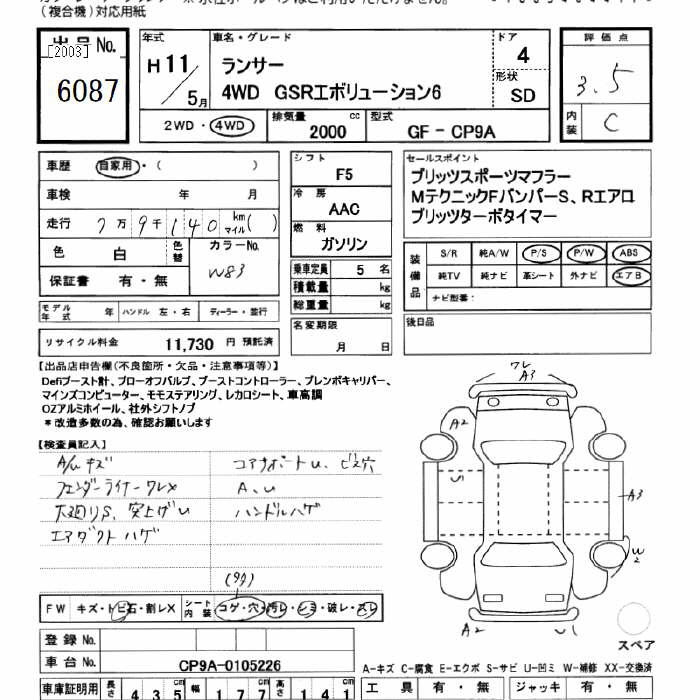 （複合機）対応用紙
出品No.
[2003]
6087
年式
H11/5月
車名・グレード
ランサー
4WD GSRエボリューション6
ドア
4
形状
SD
評価点
3.5
内装
C
2WD・4WD
排気量
2000
cc
型式
GF - CP9A
車歴 自家用・（ ）
車検 年 月
走行 7万9千140 km マイル( )
色 白 色替
カラーNo.
W83
保証書 有・無
シフト
F5
冷房
AAC
燃料
ガソリン
乗車定員 5 名
積載量 kg
総重量 kg
名変期限
月 日
セールスポイント
ブリッツスポーツマフラー
MテクニックFバンパーS、Rエアロ
ブリッツターボタイマー
装備品
S/R 純A/W P/S P/W ABS
純TV 純ナビ 革シート 外ナビ エアB
ナビ型番：
後日品
モデル年式 年 ハンドル 左・右 ディーラー・並行
リサイクル料金 11,730 円 預託済
【出品店申告欄（不良箇所・欠品・注意事項等）】
Defiブースト計、ブローオフバルブ、ブーストコントローラー、ブレンボキャリパー、
マインズコンピューター、モモステアリング、レカロシート、車高調
OZアルミホイール、社外シフトノブ
＊改造多数の為、確認お願いします
【検査員記入】
A/W キズ
フェンダーライナーワレX
下廻りS、突上げU
エアダクトハゲ
コアサポートU、ビス穴
A、U
ハンドルハゲ
FW キズ・トビ石・割レX
シート内装
コゲ・穴・汚レ・シミ・破レ・スレ
ワレ
A3
A2
S
A3
W2
A2
U1
スペア
登録No.
車台No. CP9A-0105226
A-キズ C-腐食 E-エクボ S-サビ U-凹ミ W-補修 XX-交換済
車庫証明用 長さ 435 cm 幅 177 cm 高さ 141 cm
工具 有・無 ジャッキ 有・無